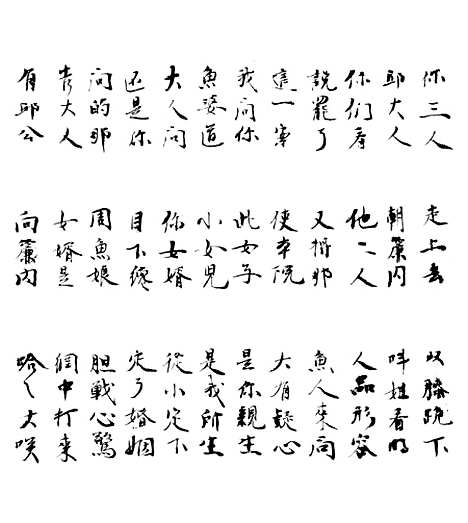 你三人 走上去 双膝跪下
邱大人 朝簾内 叫姓看明
你们看 他二人 人品形容
説罷了 又將那 魚人來问
這一案 使本院 大有疑心
我问你 此女子 是你親生
魚婆道 小女兒 是我所生
大人问 你女婿 從小定下
还是你 目下纔 定了婚姻
问的那 周魚娘 胆戰心驚
大人 女婿是 個中打來
有邱公 向簾内 哈〻大咲